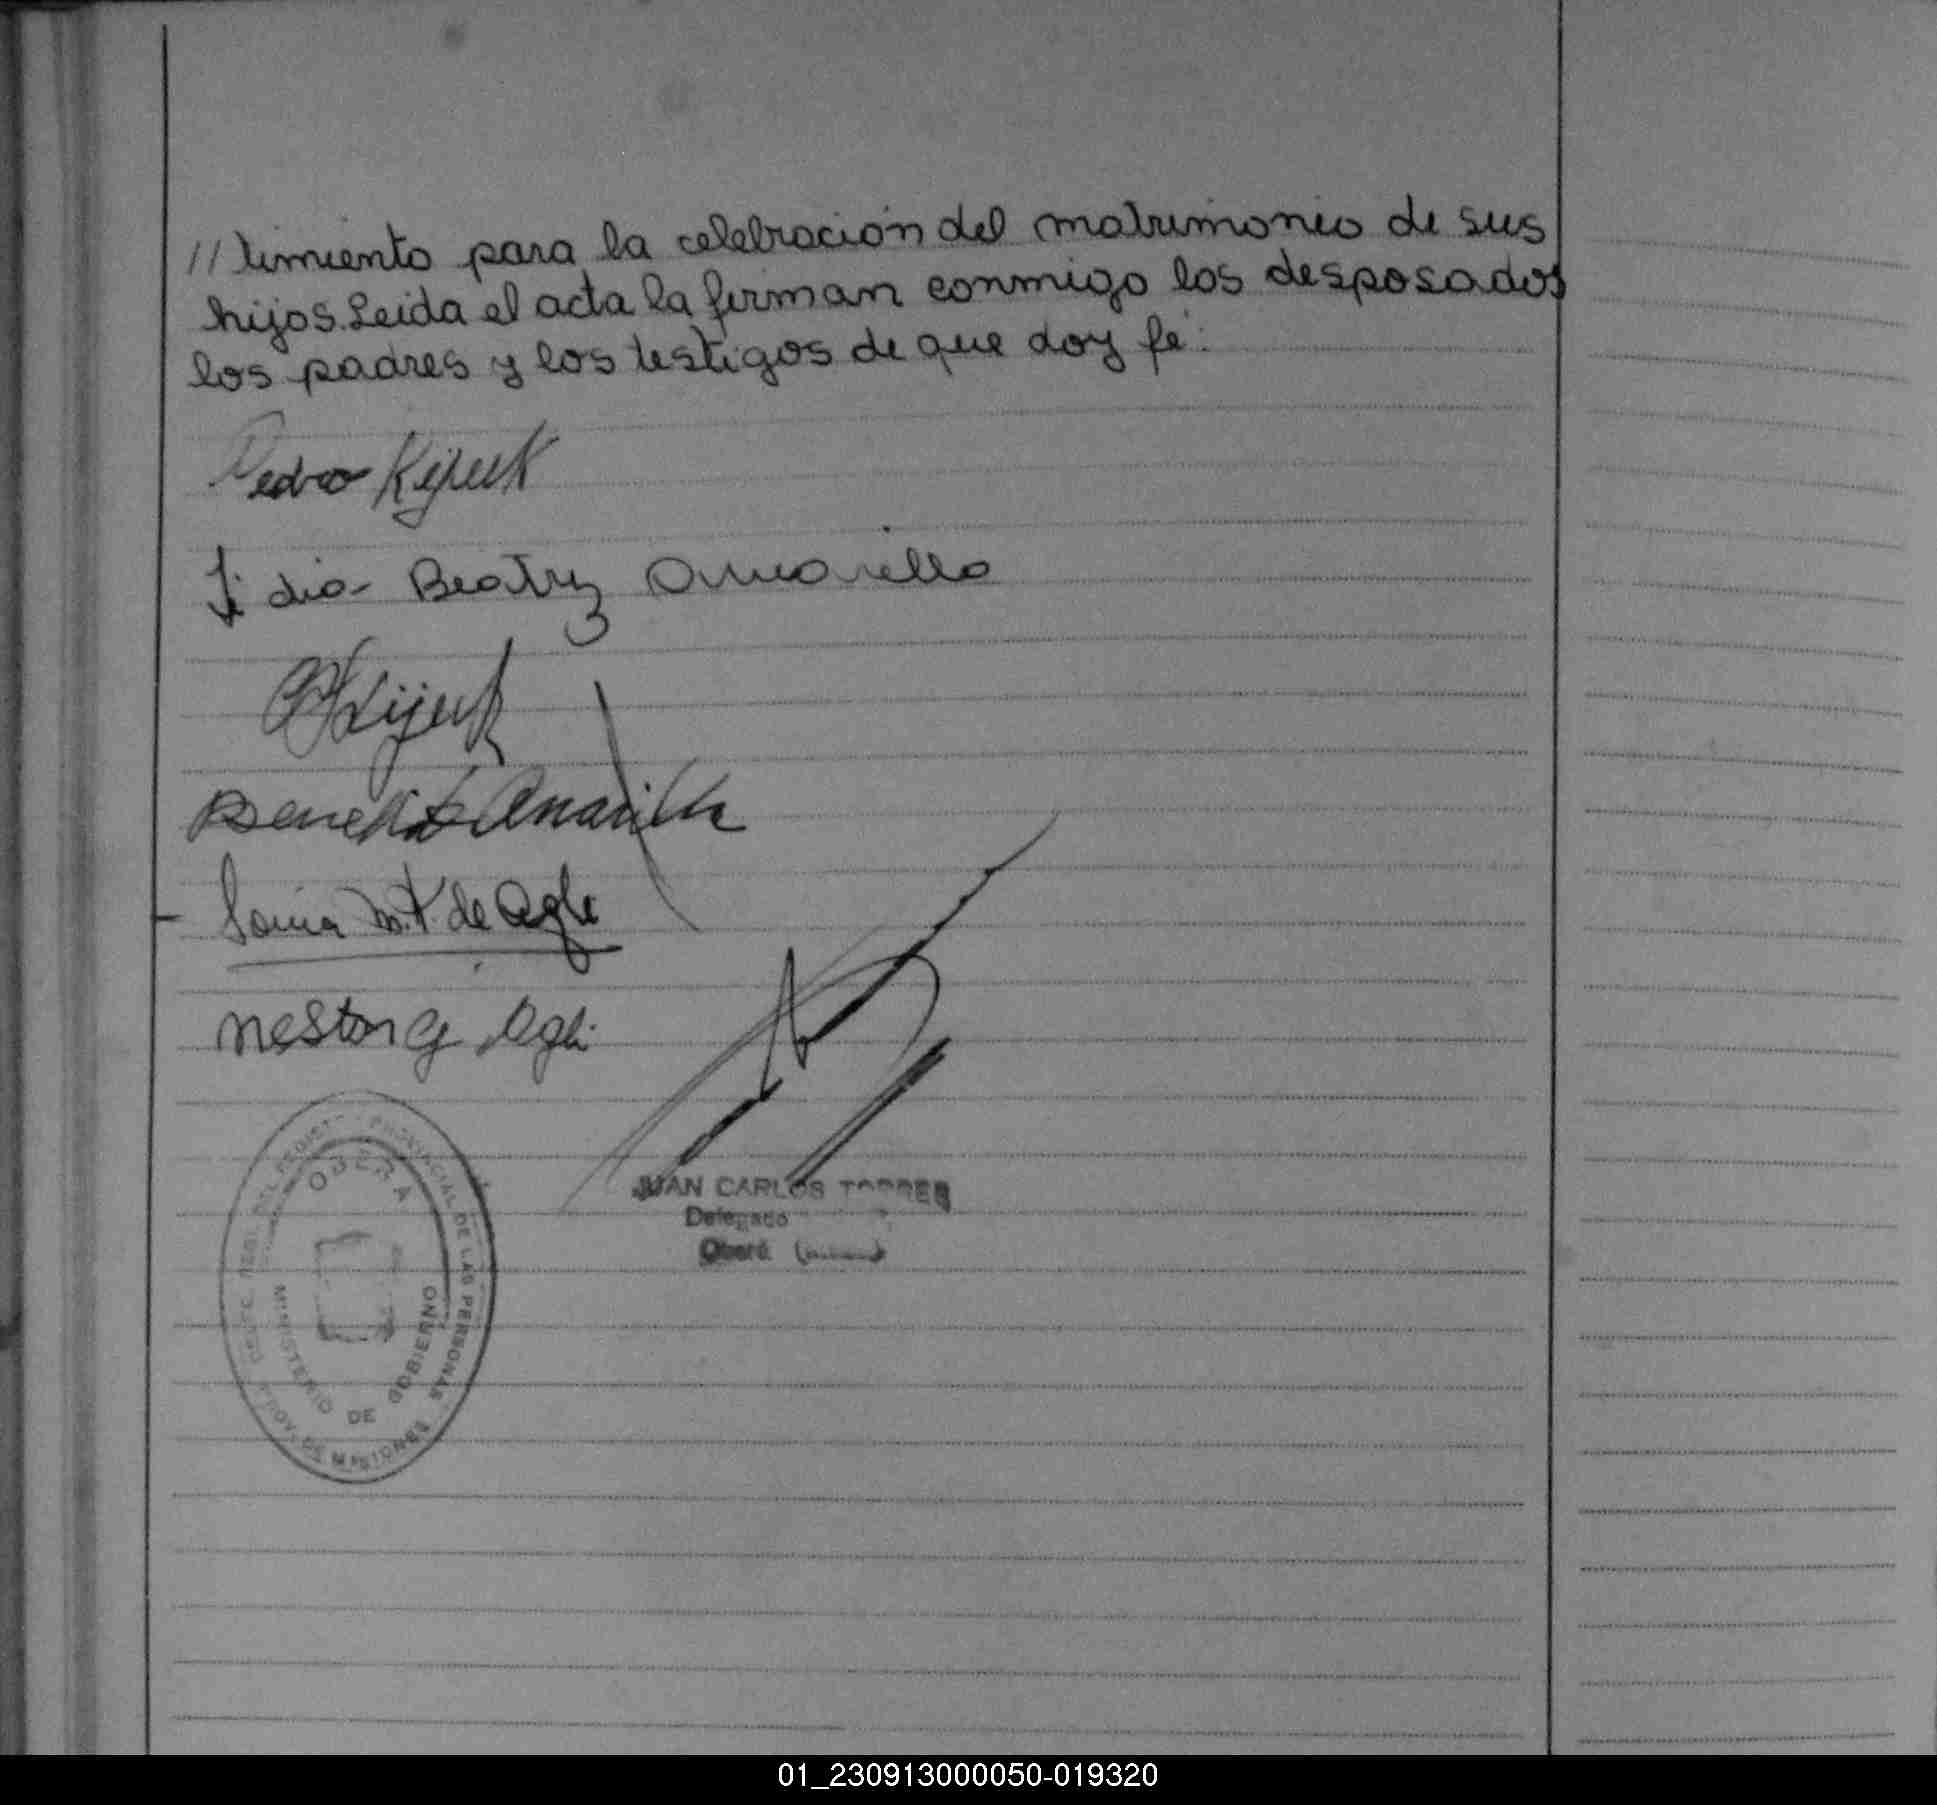 // timiento para la celebración del matrimonio de sus
hijos. Leida el acta la firman conmigo los desposados
los padres y los testigos de que doy fé.
Pedro Kijeuk
Lidia Beatriz Amarilla
Kijeuk
Amarilla
Sonia M. F. de Agli
Nestor G Agli
JUAN CARLOS TORRES
Delegado
Oberá
OBERA
PROVINCIAL DE LAS PERSONAS
MINISTERIO DE GOBIERNO
PROV. DE MISIONES
01_230913000050-019320